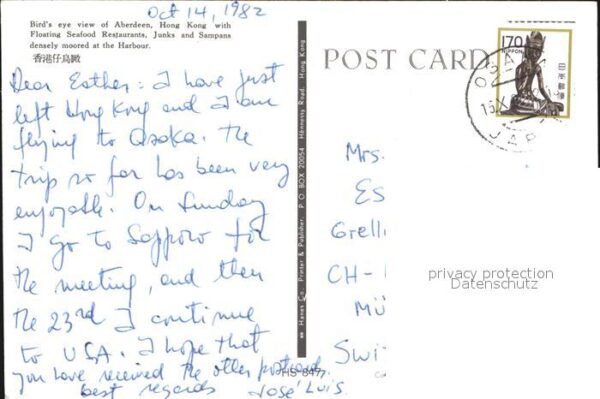 Oct 14, 1982
Bird's eye view of Aberdeen, Hong Kong with
Floating Seafood Restaurants, Junks and Sampans
densely moored at the Harbour.
香港仔鳥瞰
Dear Esther: I have just
left Hong Kong and I am
flying to Osaka. The
trip so far has been very
enjoyable. On Sunday
I go to Sapporo for
the meeting, and then
the 23rd I continue
to USA. I hope that
you have received the other postcard.
best regards José Luis.
Hanes Co. Printer & Publisher, P. O. BOX 20054 Hennessy Road, Hong Kong
HS 847
POST CARD
170
NIPPON
日本郵便
OSAKA
15.X
JAPAN
Mrs.
Es
Grell
CH-
Mü
Swi
privacy protection
Datenschutz